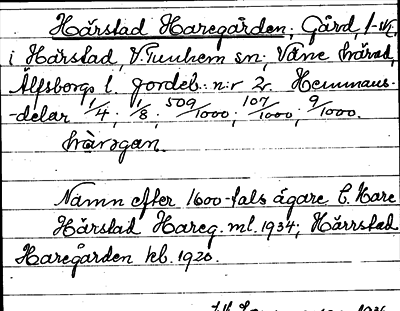 Hårstad Haregården; Gård, f-st.
i Hårstad, V. Tunhem sn; Väne härad,
Älfsborgs l. Jordeb: n:r 2. Hemmans-
-delar 1/4; 1/8; 509/1000; 107/1000; 9/1000.
håragan.
Namn efter 1600-tals ägare C. Hare
Hårstad Hareg. ml. 1934; Hårrstad
Haregården kb. 1920.